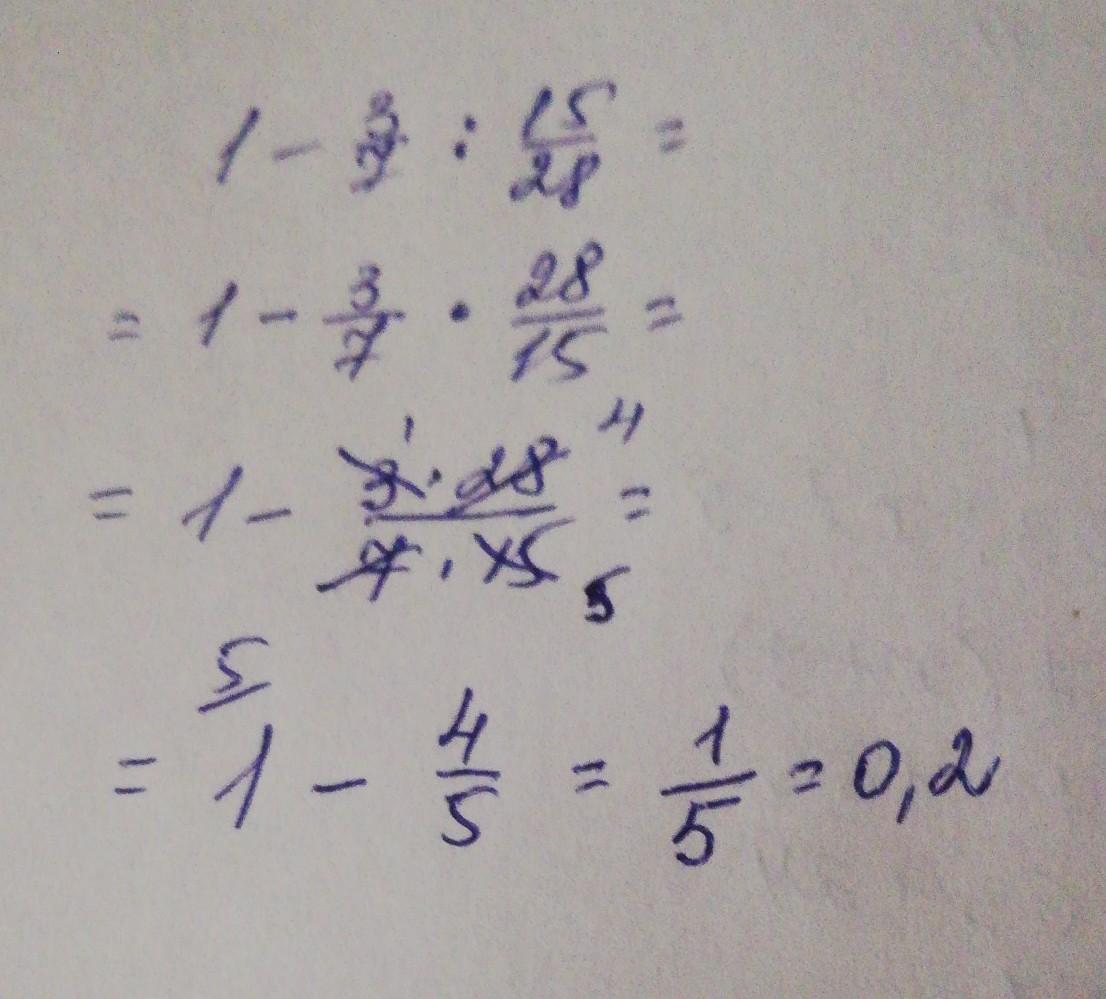 1 - 3/7 : 15/28 =
= 1 - 3/7 · 28/15 =
= 1 - 3¹ · 28⁴ / 7 · 15₅ =
= ⁵1 - 4/5 = 1/5 = 0,2